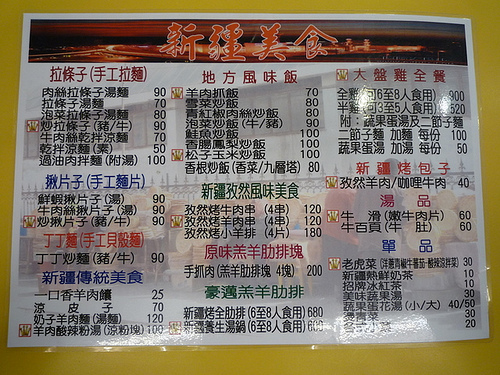 新疆美食
拉條子(手工拉麵)
肉絲拉條子湯麵 90
拉條子湯麵 70
泡菜拉條子湯麵 80
炒拉條子(豬/牛) 90
牛肉絲乾拌涼麵 70
乾拌涼麵(素) 50
過油肉拌麵(附湯) 100
揪片子(手工麵片)
鮮蝦揪片子(湯) 90
牛肉絲揪片子(湯) 90
炒揪片子(豬/牛) 90
丁丁麵(手工貝殼麵)
丁丁炒麵(豬/牛) 90
新疆傳統美食
一口香羊肉饟 25
涼皮子 70
奶子羊肉麵(湯麵) 120
羊肉酸辣粉湯(涼粉塊) 100
地方風味飯
羊肉抓飯 70
雪菜炒飯 80
青紅椒肉絲炒飯 80
泡菜炒飯(牛/豬) 90
鮭魚炒飯 100
香腸鳳梨炒飯 100
松子玉米炒飯 100
香根炒飯(香菜/九層塔) 80
新疆孜然風味美食
孜然烤牛肉串(4串) 120
孜然烤羊肉串(4串) 120
孜然烤小羊排(4片) 180
原味羔羊肋排塊
手抓肉(羔羊肋排塊 4塊) 200
豪邁羔羊肋排
新疆烤全肋排(6至8人食用) 680
新疆養生湯鍋(6至8人食用) 680
大盤雞全餐
全雞(可6至8人食用) 900
半雞(可3至5人食用) 520
附:蔬果蛋湯及二節子麵
二節子麵 加麵 每份 100
蔬果蛋湯 加湯 每份 50
新疆烤包子
孜然羊肉/咖哩牛肉 40
湯品
牛滑(嫩牛肉片) 60
牛百頁(牛肚) 60
單品
老虎菜 30
新疆熱鮮奶茶 10
招牌冰紅茶 10
美味蔬果湯 30
蔬果蛋花湯(小/大) 40/50
燙青菜 30
20